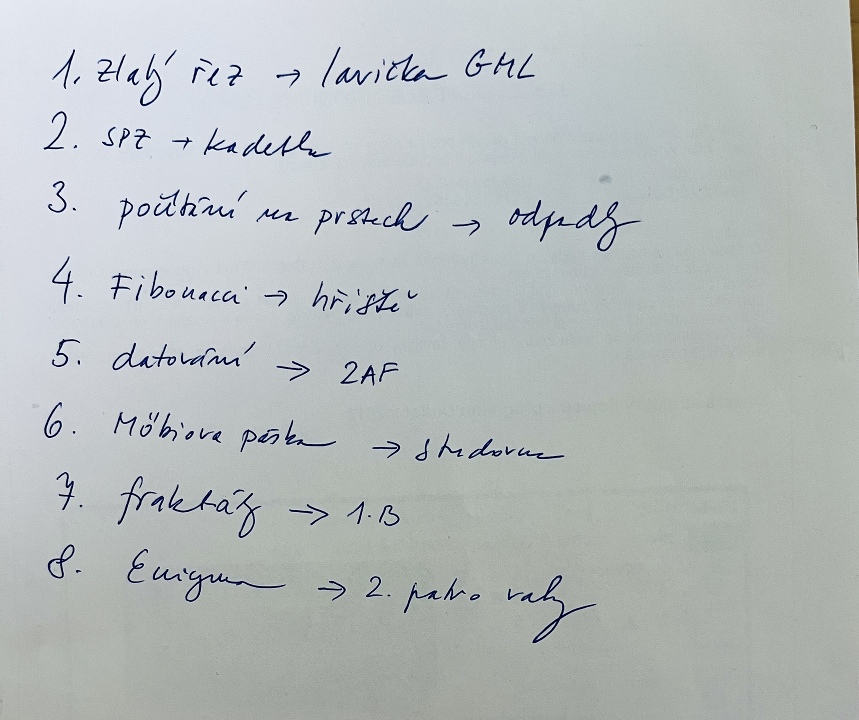 1. Zlatý řez → lavička GML
2. SPZ → kadetka
3. počítání na prstech → odpady
4. Fibonacci → hřiště
5. datování → 2AF
6. Möbiova páska → studovna
7. fraktály → 1.B
8. Enigma → 2. patro